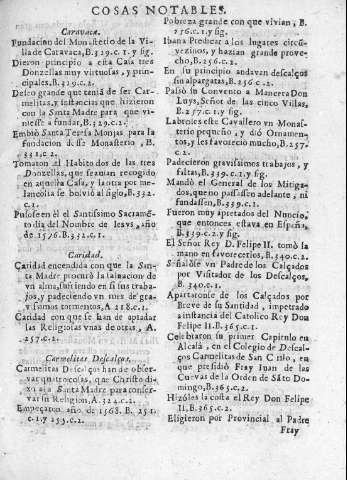 COSAS NOTABLES.
Caravaca.
Fundacion del Monasterio de la Vi-
lla de Caravaca, B. 329. c. 1. y sig.
Dieron principio a esta Casa tres
Donzellas muy virtuosas, y prin-
cipales, B. 329. c. 2.
Deseo grande que teniã de ser Car-
melitas, y instancias que hizieron
con la Santa Madre para que vi-
niesse a fundar, B. 329. c. 2.
Embiò Santa Teresa Monjas para la
fundacion desse Monasterio, B.
331. c. 2.
Tomaron el Habito dos de las tres
Donzellas, que seavian recogido
en aquella Casa, y la otra por me-
lancolia se bolviò al siglo, B. 332.
c. 1.
Pusose en èl el Santissimo Sacramẽ-
to dia del Nombre de Iesvs, año
de 1576. B. 332. c. 1.
Caridad.
Caridad encendida con que la San-
ta Madre procurò la salvacion de
vn alma, sufriendo en si sus traba-
jos, y padeciendo vn mes de gra-
vissimos tormentos, A. 218. c. 1.
Caridad con que se han de aptadar
las Religiosas vnas de otras, A.
257. c. 2.
Carmelitas Descalços.
Carmelitas Descalços han de obser-
var quatro cosas, que Christo di-
xo a la Santa Madre para conser-
var su Religion, A. 324. c. 2.
Empeçaron año de 1568. B. 251.
c. 1. y 253. c. 2.
Pobreza grande con que vivian, B.
256. c. 1. y sig.
Iban a Predicar a los lugares circũ-
vezinos, y hazian grande prove-
cho, B. 256. c. 2.
En su principio andavan descalços
sin alpargatas, B. 256. c. 2.
Passò su Convento a Mancera Don
Luys, Señor de las cinco Villas,
B. 257. c. 1. y sig.
Labroles este Cavallero vn Monas-
terio pequeño, y diò Ornamen-
tos, y les favoreciò mucho, B. 257.
c. 2.
Padecieron gravissimos trabajos, y
faltas, B. 339. c. 1. y sig.
Mandò el General de los Mitiga-
dos, que no passassen adelante, ni
fundassen, B. 339. c. 1.
Fueron muy apretados del Nuncio,
que entonces estava en España,
B. 339. c. 2. y sig.
El Señor Rey D. Felipe II. tomò la
mano en favorecerlos, B. 340. c. 2.
Señalòse vn Padre de los Calçados
por Visitador de los Descalços,
B. 340. c. 2.
Apartaronse de los Calçados por
Breve de su Santidad, impetrado
a instancia del Catolico Rey Don
Felipe II. B. 365. c. 1.
Celebraron su primer Capitulo en
Alcalà, en el Colegio de Descal-
ços Carmelitas de San Cirilo, en
que presidiò Fray Iuan de las
Cuevas de la Orden de Sãto Do-
mingo, B. 365. c. 2.
Hizòles la costa el Rey Don Felipe
II. B. 365. c. 2.
Eligieron por Provincial al Padre
Fray